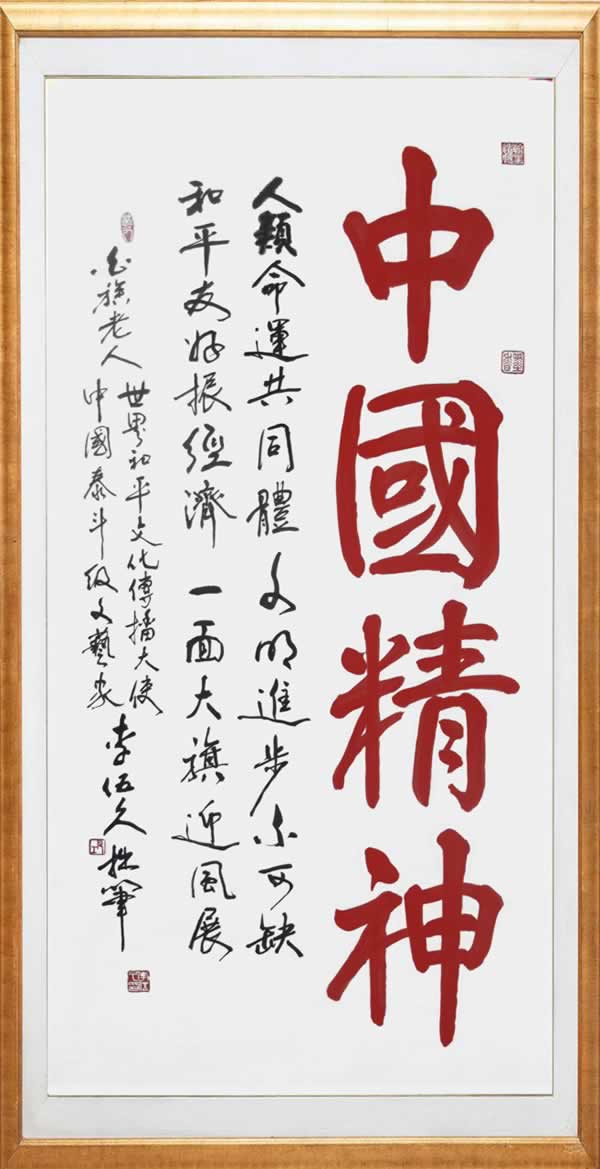 中國精神
人類命運共同體 文明進步不可缺
和平友好振經濟 一面大旗迎風展
老人
世界和平文化傳播大使
中國泰斗級文藝家
李伍久 拙筆